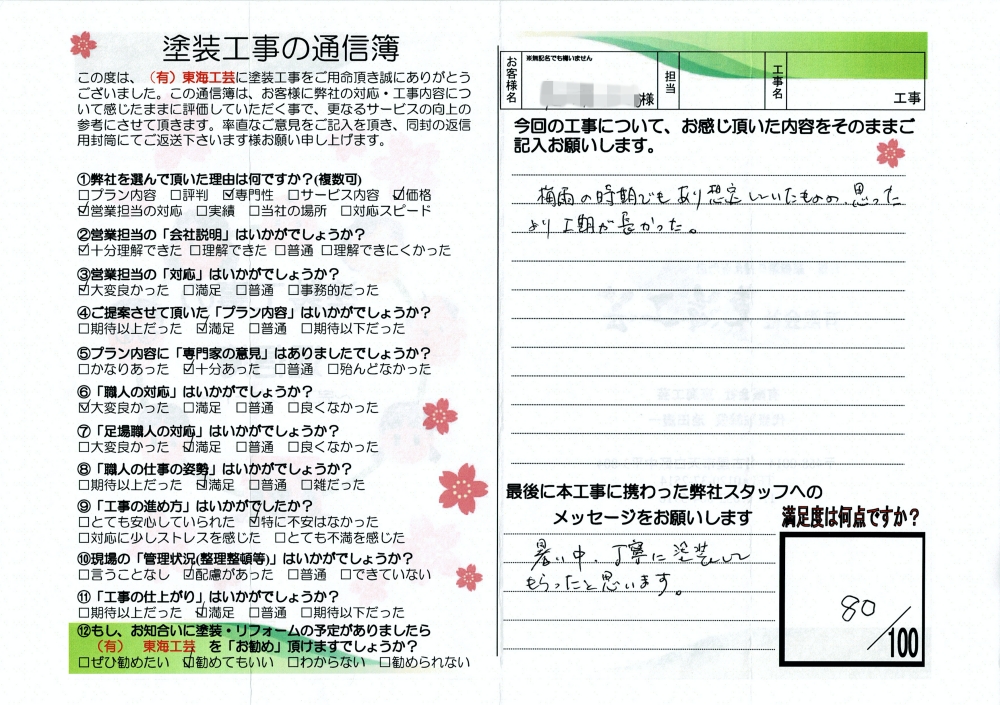 塗装工事の通信簿
この度は、（有）東海工芸に塗装工事をご用命頂き誠にありがとう
ございました。この通信簿は、お客様に弊社の対応・工事内容につ
いて感じたままに評価していただく事で、更なるサービスの向上の
参考にさせて頂きます。率直なご意見をご記入を頂き、同封の返信
用封筒にてご返送下さいます様お願い申し上げます。
①弊社を選んで頂いた理由は何ですか?(複数可)
□プラン内容 □評判 ☑専門性 □サービス内容 ☑価格
☑営業担当の対応 □実績 □当社の場所 □対応スピード
②営業担当の「会社説明」はいかがでしょうか?
☑十分理解できた □理解できた □普通 □理解できにくかった
③営業担当の「対応」はいかがでしょうか?
☑大変良かった □満足 □普通 □事務的だった
④ご提案させて頂いた「プラン内容」はいかがでしょうか?
□期待以上だった ☑満足 □普通 □期待以下だった
⑤プラン内容に「専門家の意見」はありましたでしょうか?
□かなりあった ☑十分あった □普通 □殆んどなかった
⑥「職人の対応」はいかがでしょうか?
☑大変良かった □満足 □普通 □良くなかった
⑦「足場職人の対応」はいかがでしょうか?
□大変良かった ☑満足 □普通 □良くなかった
⑧「職人の仕事の姿勢」はいかがでしょうか?
□期待以上だった ☑満足 □普通 □雑だった
⑨「工事の進め方」はいかがでしたか?
□とても安心していられた ☑特に不安はなかった
□対応に少しストレスを感じた □とても不満を感じた
⑩現場の「管理状況(整理整頓等)」はいかがでしょうか?
□言うことなし ☑配慮があった □普通 □できていない
⑪「工事の仕上がり」はいかがでしょうか?
□期待以上だった ☑満足 □普通 □期待以下だった
⑫もし、お知合いに塗装・リフォームの予定がありましたら
（有） 東海工芸 を「お勧め」頂けますでしょうか?
□ぜひ勧めたい ☑勧めてもいい □わからない □勧められない
お客様名
※無記名でも構いません
様
担当
工事名
工事
今回の工事について、お感じ頂いた内容をそのままご
記入お願いします。
梅雨の時期でもあり想定していたものの、思った
より工期が長かった。
最後に本工事に携わった弊社スタッフへの
メッセージをお願いします
暑い中、丁寧に塗装して
もらったと思います。
満足度は何点ですか?
80/100